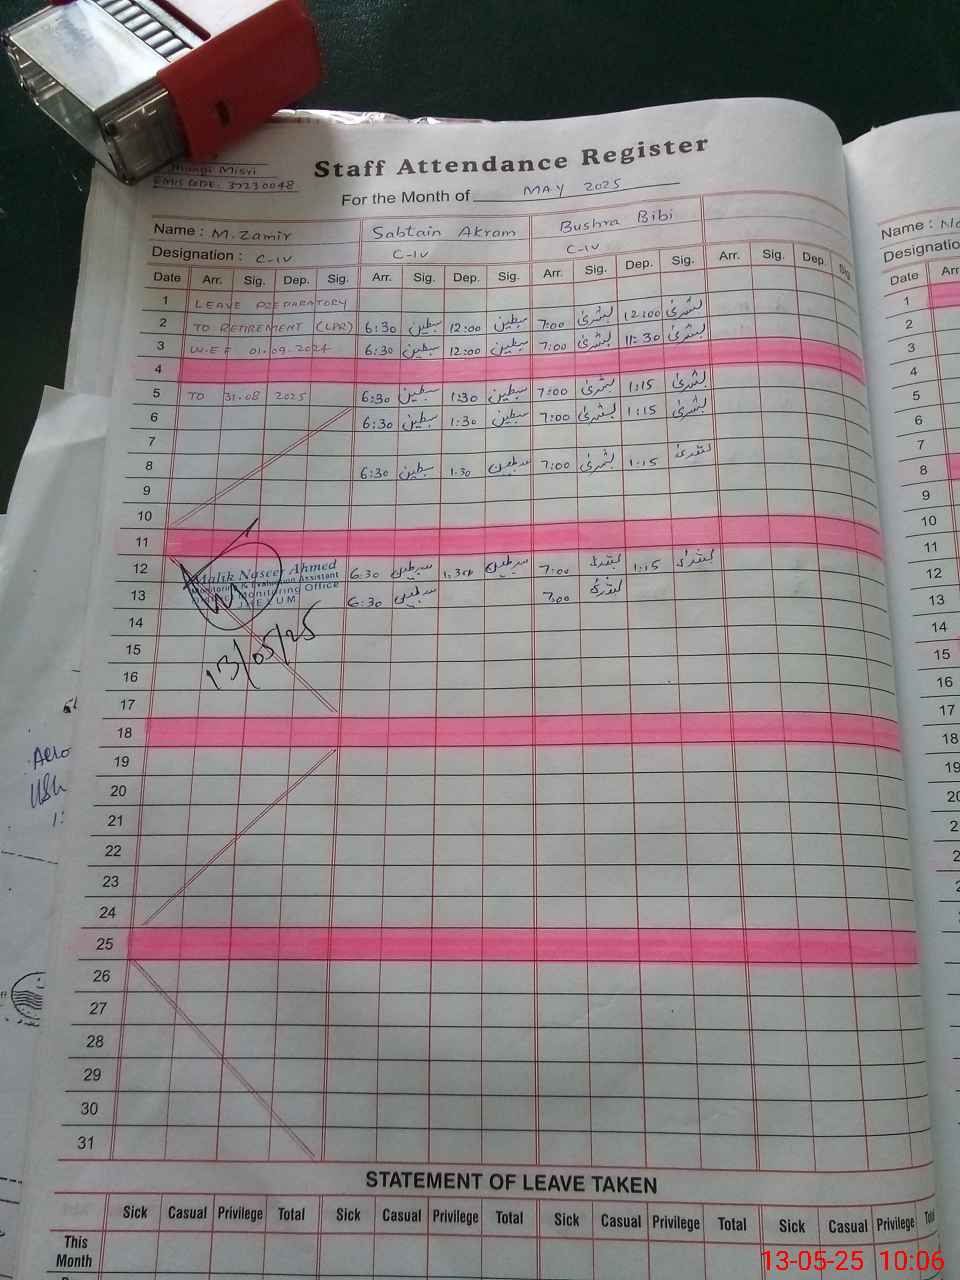 Misri
EMIS CODE: 37230048
Staff Attendance Register
For the Month of MAY 2025
Name : M. Zamir Sabtain Akram Bushra Bibi
Designation : C-IV C-IV C-IV
Date Arr. Sig. Dep. Sig. Arr. Sig. Dep. Sig. Arr. Sig. Dep. Sig. Arr. Sig. Dep. Sig
1 LEAVE PREPARATORY
2 TO RETIREMENT (LPR) 6:30 سبطین 12:00 سبطین 7:00 بشریٰ 12:00 بشریٰ
3 W.E.F 01.09.2024 6:30 سبطین 12:00 سبطین 7:00 بشریٰ 11:30 بشریٰ
4
5 TO 31.08 2025 6:30 سبطین 1:30 سبطین 7:00 بشریٰ 1:15 بشریٰ
6 6:30 سبطین 1:30 سبطین 7:00 بشریٰ 1:15 بشریٰ
7
8 6:30 سبطین 1:30 سبطین 7:00 بشریٰ 1:15 بشریٰ
9
10
11
12 6:30 سبطین 1:30 سبطین 7:00 بشریٰ 1:15 بشریٰ
13 6:30 سبطین 7:00 بشریٰ
Malik Naseer Ahmed
Monitoring & Evaluation Assistant
Monitoring Office
13/05/25
14
15
16
17
18
19
20
21
22
23
24
25
26
27
28
29
30
31
STATEMENT OF LEAVE TAKEN
Sick Casual Privilege Total Sick Casual Privilege Total Sick Casual Privilege Total Sick Casual Privilege Total
This
Month
Name :
Designatio
Date Arr
1
2
3
4
5
6
7
8
9
10
11
12
13
14
15
16
17
18
19
13-05-25 10:06